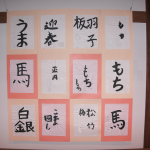 もち
羽子
板
迎春
うま
もち
もち
正月
馬
馬
松竹
梅
白銀